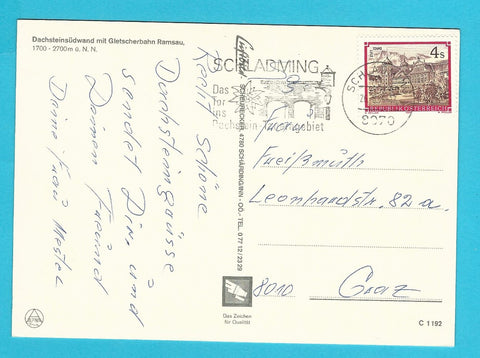 Dachsteinsüdwand mit Gletscherbahn Ramsau,
1700 - 2700 m ü. N. N.
Recht schöne
Dachsteingrüsse
sendet Dir und
Deinem Freund
Deine Frau
SCHLADMING
Das
Tor
ins
Dachstein-Tauerngebiet
4780 SCHÄRDING/INN - OÖ. - TEL. 0 77 12 / 23 29
4 S
REPUBLIK ÖSTERREICH
8970
Frau
Freißmuth
Leonhardstr. 82 a
8010 Graz
Das Zeichen
für Qualität
C 1192